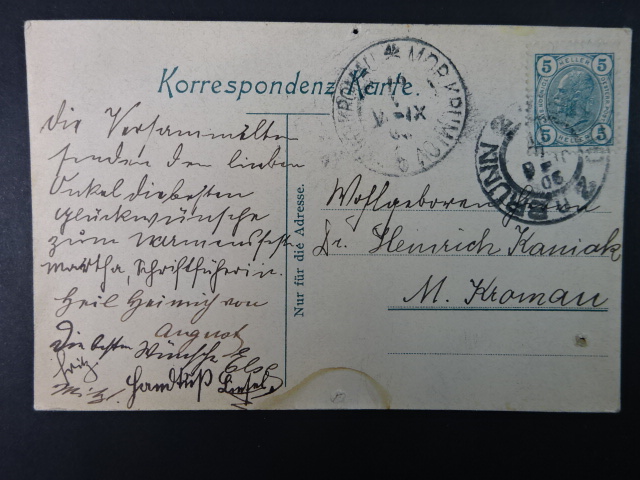 Korrespondenz-Karte.
Die Versammelten
senden dem lieben
Onkel die besten
Glückwünsche
zum Namensfeste
Martha, Schriftführerin.
Heil Heinrich von
August
Die besten Wünsche Else
Fritz
Mitzi. Handkuß Liesele
Nur für die Adresse.
Wohlgeboren
Dr. Heinrich Kaniak
M. Kromau
5 HELLER 5
5 5
MOR. KRUMLOV
BRÜNN 2